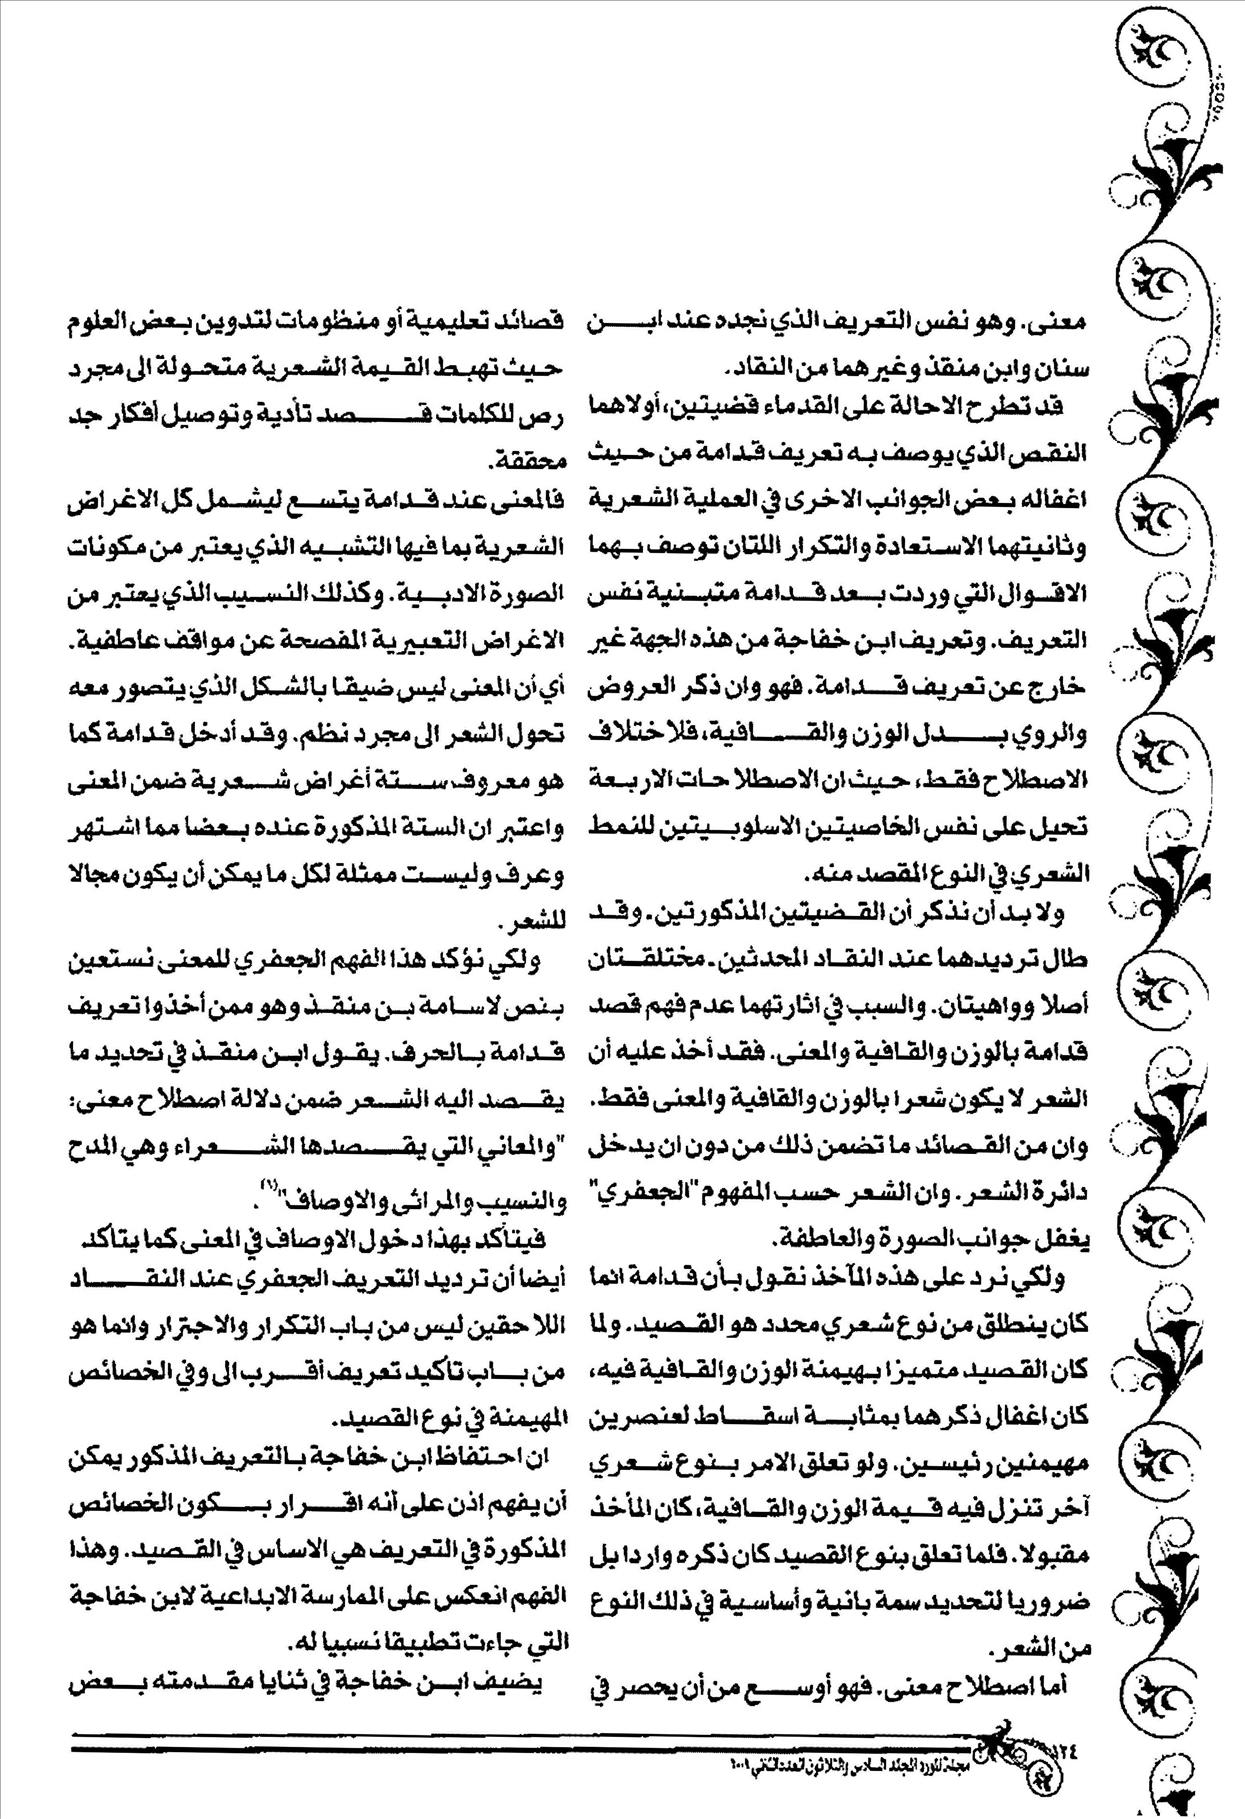 معنى. وهو نفس التعريف الذي نجده عند ابن
سنان وابن منقذ وغيرهما من النقاد.
قد تطرح الاحالة على القدماء قضيتين، أولاهما
النقص الذي يوصف به تعريف قدامة من حيث
اغفاله بعض الجوانب الاخرى في العملية الشعرية
وثانيتهما الاستعادة والتكرار اللتان توصف بهما
الاقوال التي وردت بعد قدامة متبنية نفس
التعريف. وتعريف ابن خفاجة من هذه الجهة غير
خارج عن تعريف قدامة. فهو وان ذكر العروض
والروي بدل الوزن والقافية، فلاختلاف
الاصطلاح فقط، حيث ان الاصطلاحات الاربعة
تحيل على نفس الخاصيتين الاسلوبيتين للنمط
الشعري في النوع المقصد منه.
ولا بد أن نذكر أن القضيتين المذكورتين. وقد
طال ترديدهما عند النقاد المحدثين. مختلقتان
أصلا وواهيتان. والسبب في اثارتهما عدم فهم قصد
قدامة بالوزن والقافية والمعنى. فقد أخذ عليه أن
الشعر لا يكون شعرا بالوزن والقافية والمعنى فقط.
وان من القصائد ما تضمن ذلك من دون ان يدخل
دائرة الشعر. وان الشعر حسب المفهوم "الجعفري"
يغفل جوانب الصورة والعاطفة.
ولكي نرد على هذه المآخذ نقول بأن قدامة انما
كان ينطلق من نوع شعري محدد هو القصيد. ولما
كان القصيد متميزا بهيمنة الوزن والقافية فيه،
كان اغفال ذكرهما بمثابة اسقاط لعنصرين
مهيمنين رئيسين. ولو تعلق الامر بنوع شعري
آخر تنزل فيه قيمة الوزن والقافية، كان المأخذ
مقبولا. فلما تعلق بنوع القصيد كان ذكره واردا بل
ضروريا لتحديد سمة بانية وأساسية في ذلك النوع
من الشعر.
أما اصطلاح معنى. فهو أوسع من أن يحصر في
قصائد تعليمية أو منظومات لتدوين بعض العلوم
حيث تهبط القيمة الشعرية متحولة الى مجرد
رص للكلمات قصد تأدية وتوصيل أفكار جد
محققة.
فالمعنى عند قدامة يتسع ليشمل كل الاغراض
الشعرية بما فيها التشبيه الذي يعتبر من مكونات
الصورة الادبية. وكذلك النسيب الذي يعتبر من
الاغراض التعبيرية المفصحة عن مواقف عاطفية.
أي أن المعنى ليس ضيقا بالشكل الذي يتصور معه
تحول الشعر الى مجرد نظم. وقد أدخل قدامة كما
هو معروف ستة أغراض شعرية ضمن المعنى
واعتبر ان الستة المذكورة عنده بعضا مما اشتهر
وعرف وليست ممثلة لكل ما يمكن أن يكون مجالا
للشعر.
ولكي نؤكد هذا الفهم الجعفري للمعنى نستعين
بنص لاسامة بن منقذ وهو ممن أخذوا تعريف
قدامة بالحرف. يقول ابن منقذ في تحديد ما
يقصد اليه الشعر ضمن دلالة اصطلاح معنى:
"والمعاني التي يقصدها الشعراء وهي المدح
والنسيب والمراثى والاوصاف"(٦).
فيتأكد بهذا دخول الاوصاف في المعنى كما يتاكد
أيضا أن ترديد التعريف الجعفري عند النقاد
اللاحقين ليس من باب التكرار والاجترار وانما هو
من باب تأكيد تعريف أقرب الى وفي الخصائص
المهيمنة في نوع القصيد.
ان احتفاظ ابن خفاجة بالتعريف المذكور يمكن
أن يفهم اذن على أنه اقرار بكون الخصائص
المذكورة في التعريف هي الاساس في القصيد. وهذا
الفهم انعكس على الممارسة الابداعية لابن خفاجة
التي جاءت تطبيقا نسبيا له.
يضيف ابن خفاجة في ثنايا مقدمته بعض
١٢٤
مجلة المورد المجلد السادس والثلاثون العدد الثاني ٢٠٠٩